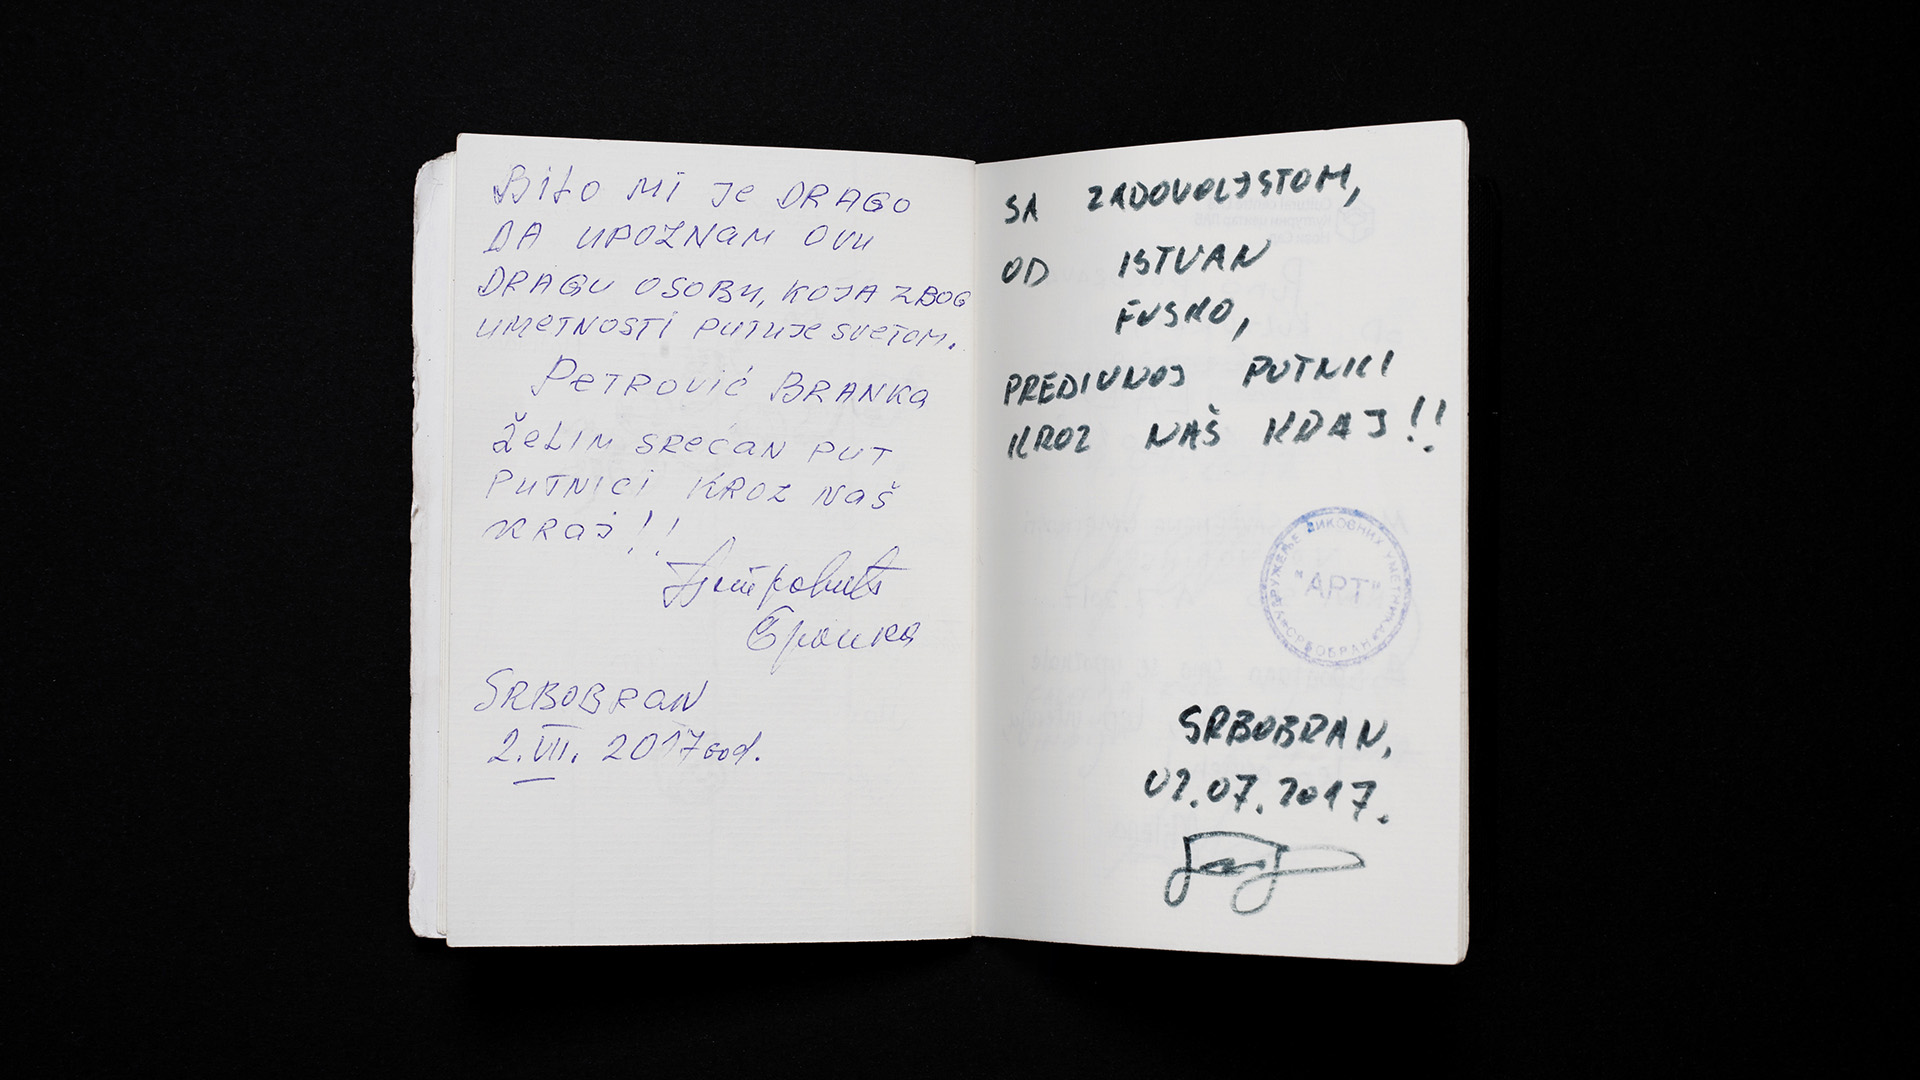 BILO MI JE DRAGO
DA UPOZNAM OVU
DRAGU OSOBU, KOJA ZBOG
UMETNOSTI PUTUJE SVETOM.
PETROVIĆ BRANKA
ŽELIM SREĆAN PUT
PUTNICI KROZ NAŠ
KRAJ!!
Петровић
Бранка
SRBOBRAN
2. VII. 2017 god.
SA ZADOVOLJSTOM,
OD ISTVAN
FUSKO,
PREDIVNOJ PUTNICI
KROZ NAŠ KRAJ!!
УДРУЖЕЊЕ ЛИКОВНИХ УМЕТНИКА
"АРТ"
СРБОБРАН
SRBOBRAN,
02.07.2017.